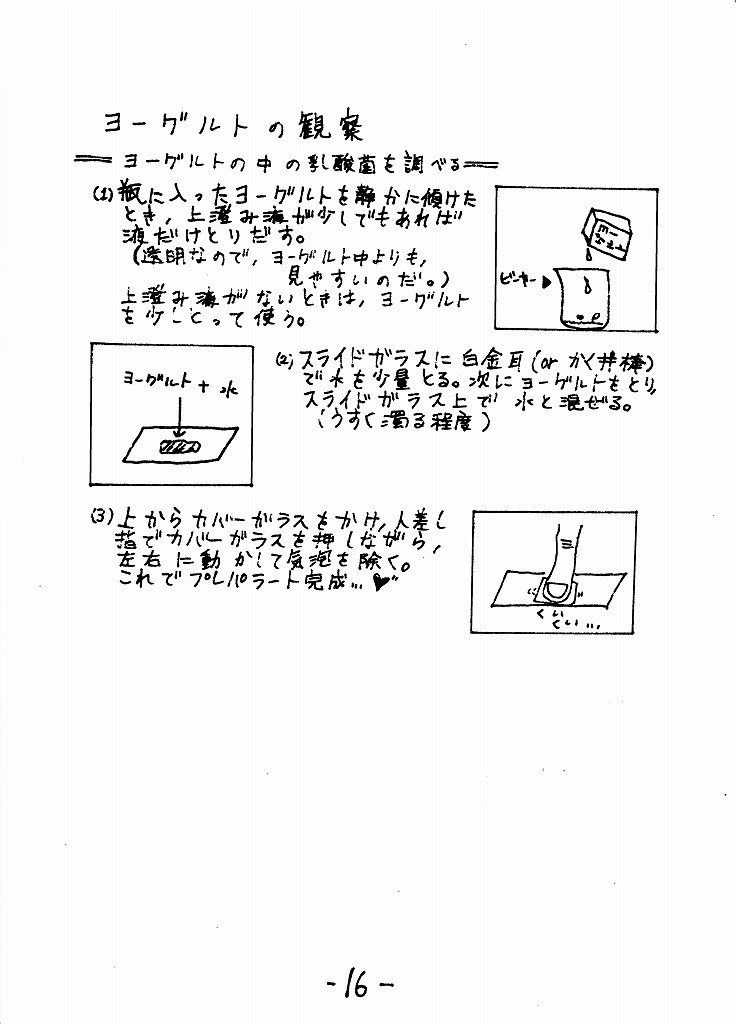 ヨーグルトの観察
ヨーグルトの中の乳酸菌を調べる
(1) 瓶に入ったヨーグルトを静かに傾けた
とき，上澄み液が少しでもあれば
液だけとりだす。
(透明なので，ヨーグルト中よりも，
見やすいのだ。)
上澄み液がないときは，ヨーグルト
を少しとって使う。
ビーカー
(2) スライドガラスに白金耳(or かくまぜ棒)
で水を少量とる。次にヨーグルトをとり，
スライドガラス上で水と混ぜる。
(うすく濁る程度)
ヨーグルト + 水
(3) 上からカバーガラスをかけ，人差し
指でカバーガラスを押しながら，
左右に動かして気泡を除く。
これでプレパラート完成…♥"
くい
くい…
-16-